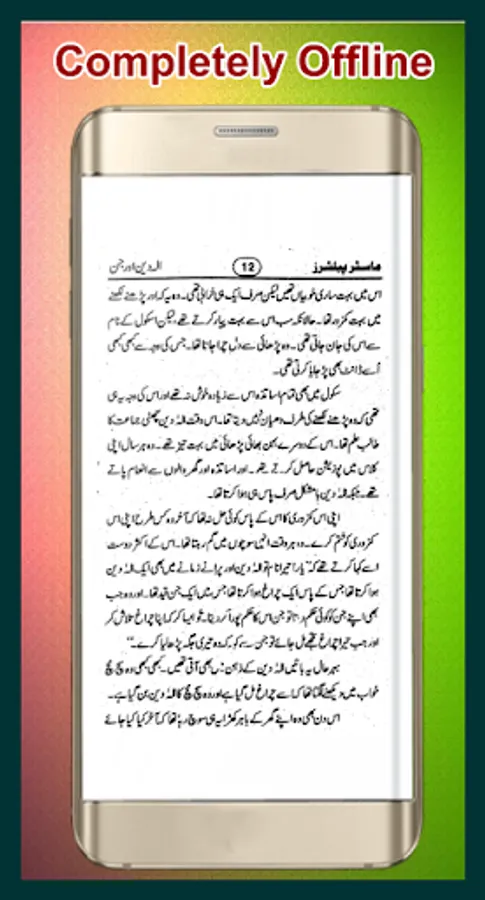 Completely Offline
ماسٹر پبلشرز 12 الہ دین اور جن
اس میں بہت ساری خوبیاں تھیں لیکن صرف ایک ہی خرابی تھی۔ وہ یہ کہ اور پڑھنے لکھنے
میں بہت کمزور تھا۔ حالانکہ سب اس سے بہت پیار کرتے تھے، لیکن اسکول کے نام
سے اس کی جان جاتی تھی۔ وہ پڑھائی سے دل چراجاتا تھا۔ جس کی وجہ سے کبھی کبھی
اُسے ڈانٹ بھی پڑ جایا کرتی تھی۔
سکول میں بھی تمام اساتذہ اس سے زیادہ خوش نہ تھے اور اس کی وجہ یہ ہی
تھی کہ وہ پڑھنے لکھنے کی طرف دھیان نہیں دیتا تھا۔ اس وقت الہٰ دین چھٹی جماعت کا
طالب علم تھا۔ اس کے دوسرے بہن بھائی پڑھائی میں بہت تیز تھے۔ وہ ہر سال اپنی
کلاس میں پوزیشن حاصل کرتے تھے۔ اور اساتذہ اور گھر والوں سے انعام پاتے
تھے۔ جبکہ الہٰ دین بامشکل صرف پاس ہی ہوا کرتا تھا۔
اپنی اس کمزوری کا اس کے پاس کوئی حل نہ تھا کہ آخر وہ کس طرح اپنی اس
کمزوری کو ختم کرے۔ وہ ہر وقت انہی سوچوں میں گم رہتا تھا۔ اس کے اکثر دوست
اسے کہا کرتے تھے کہ "یار! تیرا نام تو الہٰ دین اور پرانے زمانے میں بھی ایک الہٰ دین
ہوا کرتا تھا جس کے پاس ایک چراغ ہوا کرتا تھا جس میں ایک جن قید تھا۔ اور وہ جب
بھی اپنے جن کو کوئی حکم دیتا تو جن اس کا حکم پورا کر دیتا۔ تو ایسا کر کہ اپنا چراغ تلاش کر
اور جب تیرا چراغ تجھے مل جائے تو جن سے کہہ کہ وہ تیری جگہ پڑھا یا کرے۔"
بہرحال یہ باتیں الہٰ دین کے ذہن میں بھی آتی تھیں۔ کبھی کبھی وہ سچ مچ
خواب میں دیکھنے لگتا تھا کہ اسے چراغ مل گیا ہے اور وہ سچ مچ کا الہٰ دین بن گیا ہے۔
اس دن بھی وہ اپنے گھر کے باہر کھڑا یہ ہی سوچ رہا تھا کہ آخر کیا کیا جائے